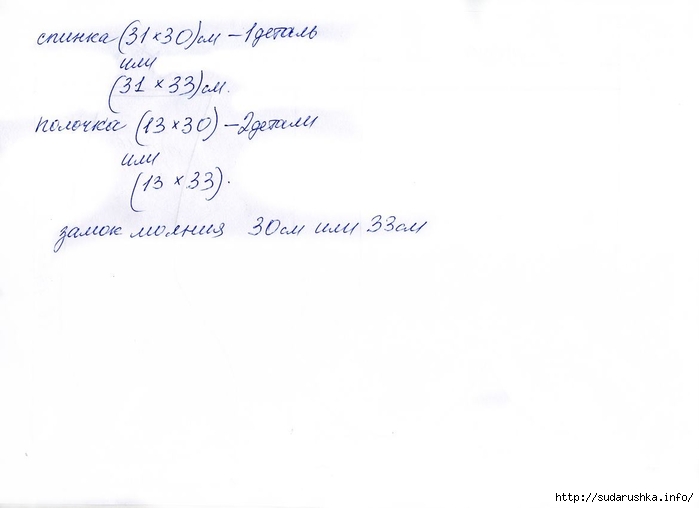 спинка (31×30)см – 1деталь
или
(31 × 33)см.
полочка (13×30) – 2детали
или
(13 × 33).
замок молния 30см или 33см
http://sudarushka.info/